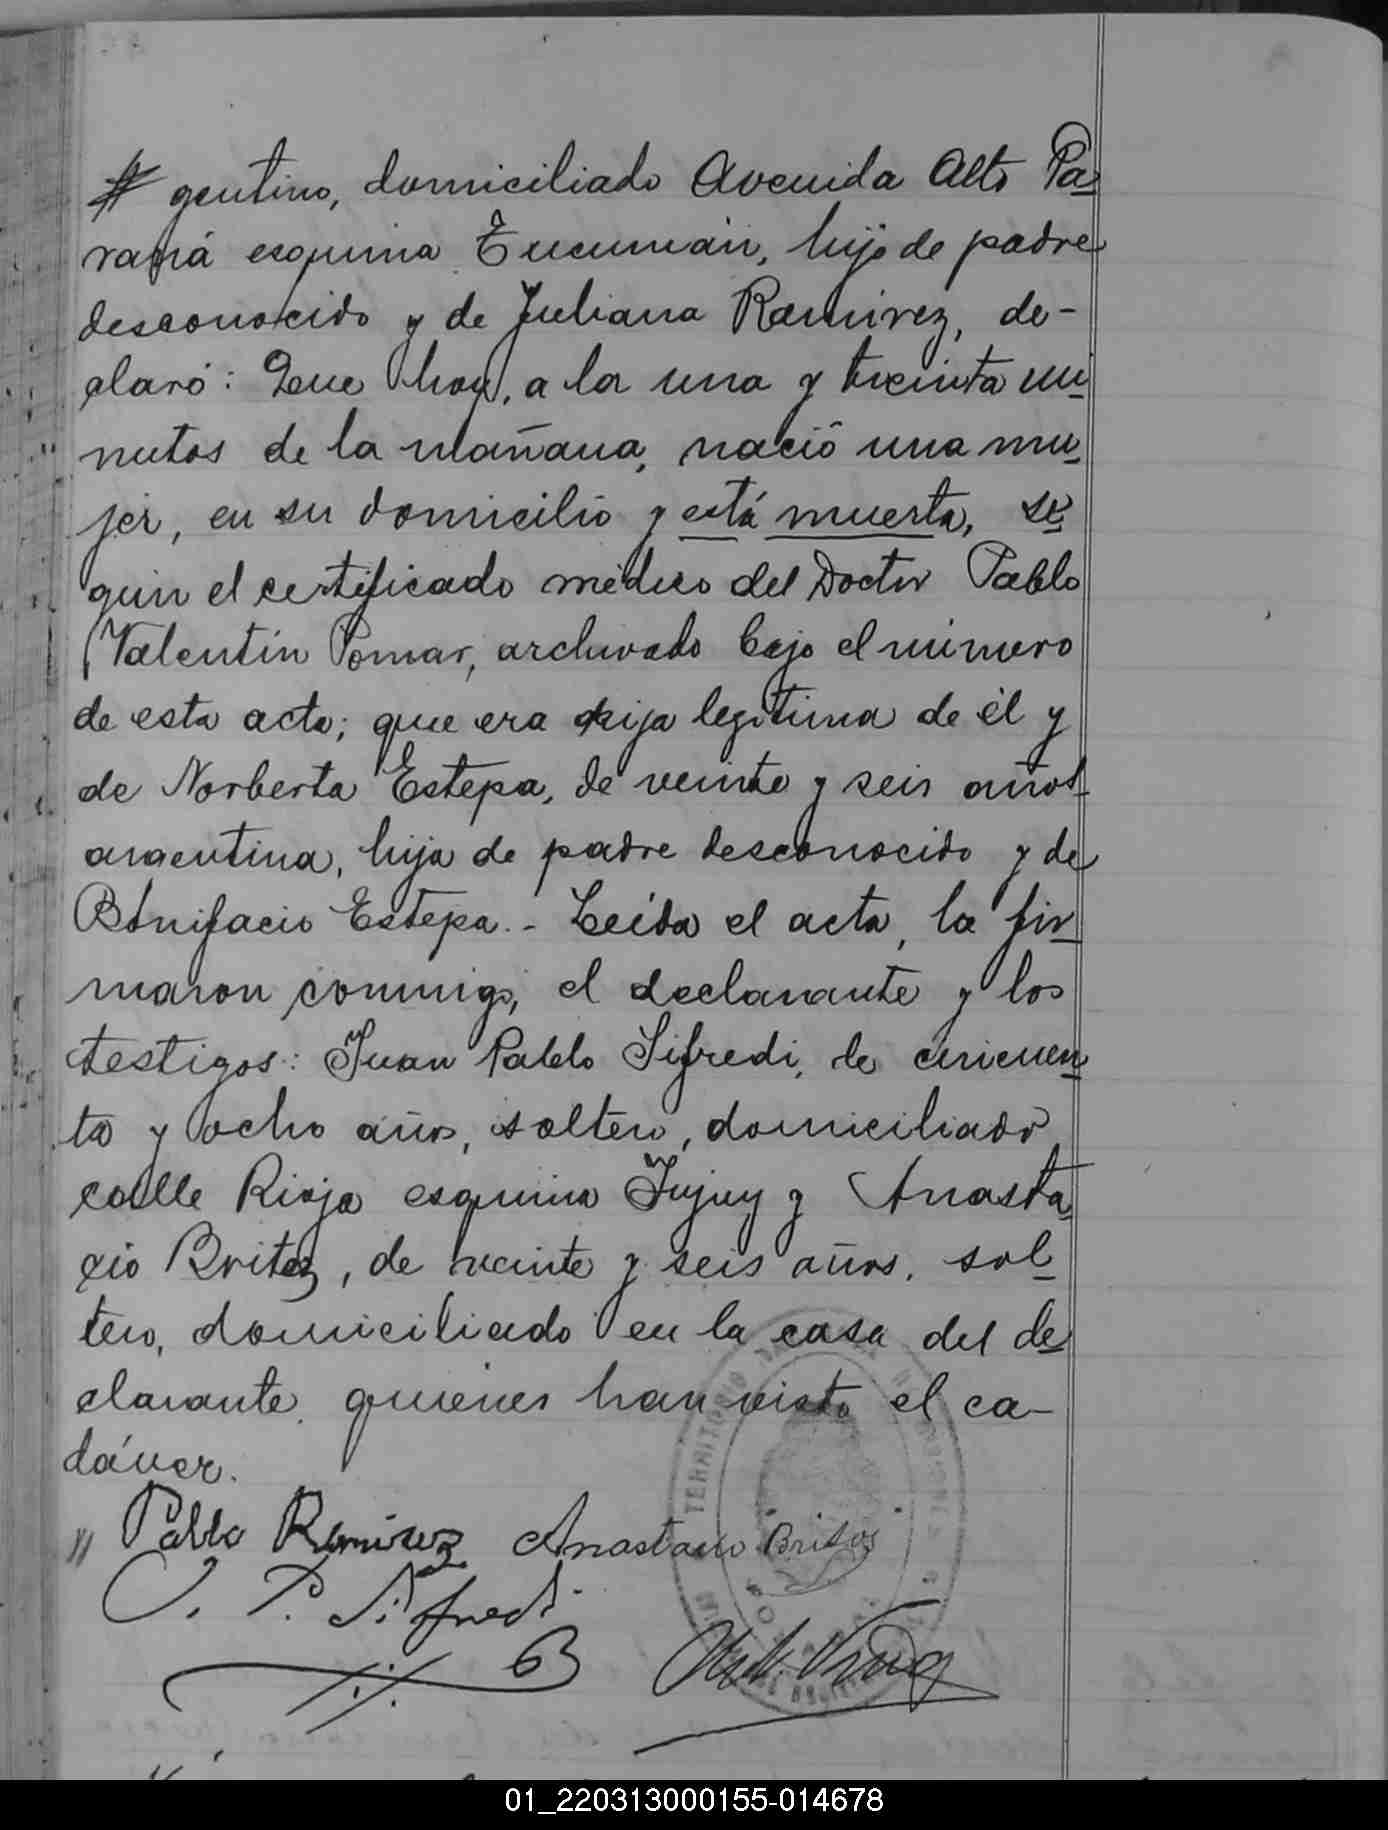 # gentino, domiciliado Avenida Alto Pa-
raná esquina Tucumán, hijo de padre
desconocido y de Juliana Ramirez, de-
claró: Que hoy, a la una y treinta mi-
nutos de la mañana, nació una mu-
jer, en su domicilio y está muerta, se-
gún el certificado médico del Doctor Pablo
Valentín Pomar, archivado bajo el número
de esta acta; que era hija legítima de él y
de Norberta Estepa, de veinte y seis años
argentina, hija de padre desconocido y de
Bonifacio Estepa.- Leída el acta, la fir-
maron conmigo, el declarante y los
testigos: Juan Pablo Sifredi, de cincuen-
ta y ocho años, soltero, domiciliado
calle Rioja esquina Jujuy y Anasta-
cio Britez, de veinte y seis años, sol-
tero, domiciliado en la casa del de-
clarante, quienes han visto el ca-
dáver.
" Pablo Ramirez Anastacio Britos
J. P. Sifredi
TERRITORIO
01_220313000155-014678